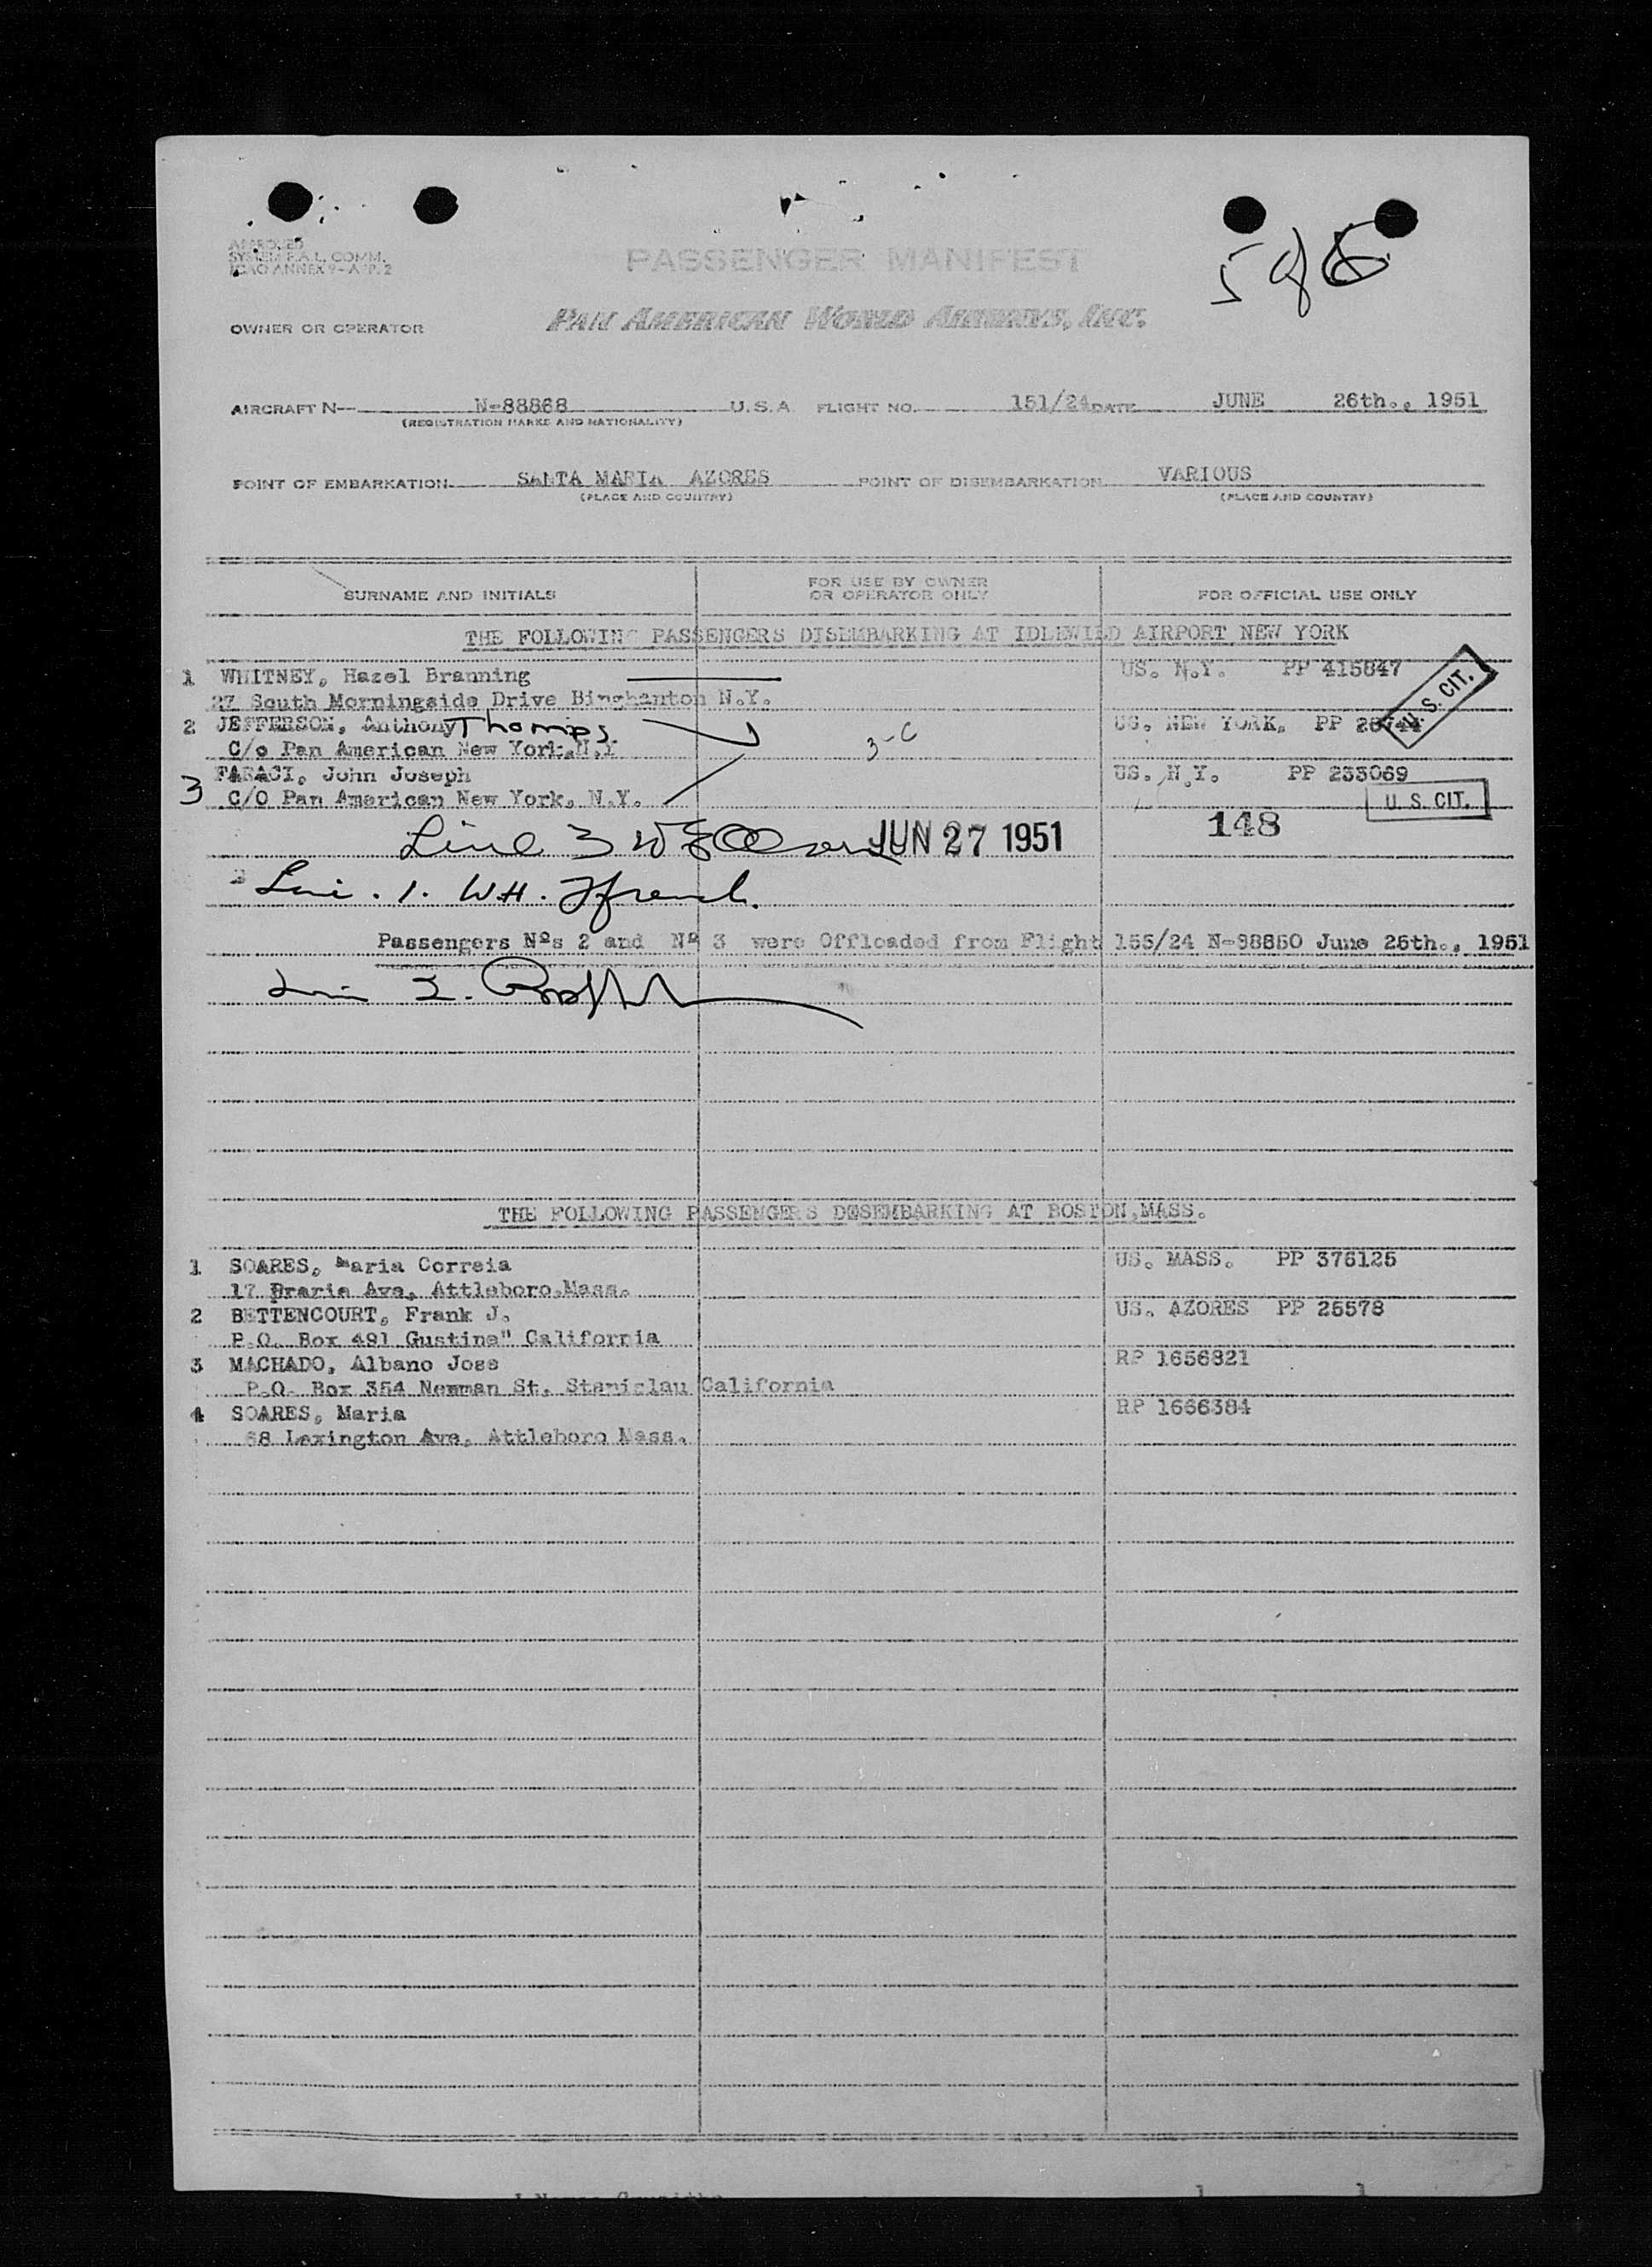 586
APPROVED
SYSTEM F.A.L. COMM.
ICAO ANNEX 9-APP. 2
PASSENGER MANIFEST
OWNER OR OPERATOR
PAN AMERICAN WORLD AIRWAYS, INC.
AIRCRAFT N— N-88868 U.S.A. FLIGHT NO. 151/24 DATE JUNE 26th., 1951
(REGISTRATION MARKS AND NATIONALITY)
POINT OF EMBARKATION SANTA MARIA AZORES POINT OF DISEMBARKATION VARIOUS
(PLACE AND COUNTRY) (PLACE AND COUNTRY)
SURNAME AND INITIALS FOR USE BY OWNER OR OPERATOR ONLY FOR OFFICIAL USE ONLY
THE FOLLOWING PASSENGERS DISEMBARKING AT IDLEWILD AIRPORT NEW YORK
1 WHITNEY, Hazel Branning US. N.Y. PP 415847
27 South Morningside Drive Binghanton N.Y. U. S. CIT.
2 JEFFERSON, Anthony Thomps. US. NEW YORK. PP 28744
C/o Pan American New York.N.Y 3-C
3 FARACI, John Joseph US. N.Y. PP 233069
C/O Pan American New York. N.Y. U. S. CIT.
Line 3 JUN 27 1951 148
1. W.H. French.
Passengers Nºs 2 and Nº 3 were Offloaded from Flight 155/24 N-88850 June 25th., 1951
2.
THE FOLLOWING PASSENGERS DESEMBARKING AT BOSTON,MASS.
1 SOARES, Maria Correia US. MASS. PP 376125
17 Praria Ave, Attleboro.Mass.
2 BETTENCOURT, Frank J. US. AZORES PP 25578
P.O. Box 491 Gustine" California
3 MACHADO, Albano Jose RP 1656821
P.O. Box 354 Newman St. Stanislau California
4 SOARES, Maria RP 1666384
68 Lexington Ave, Attleboro Mass.